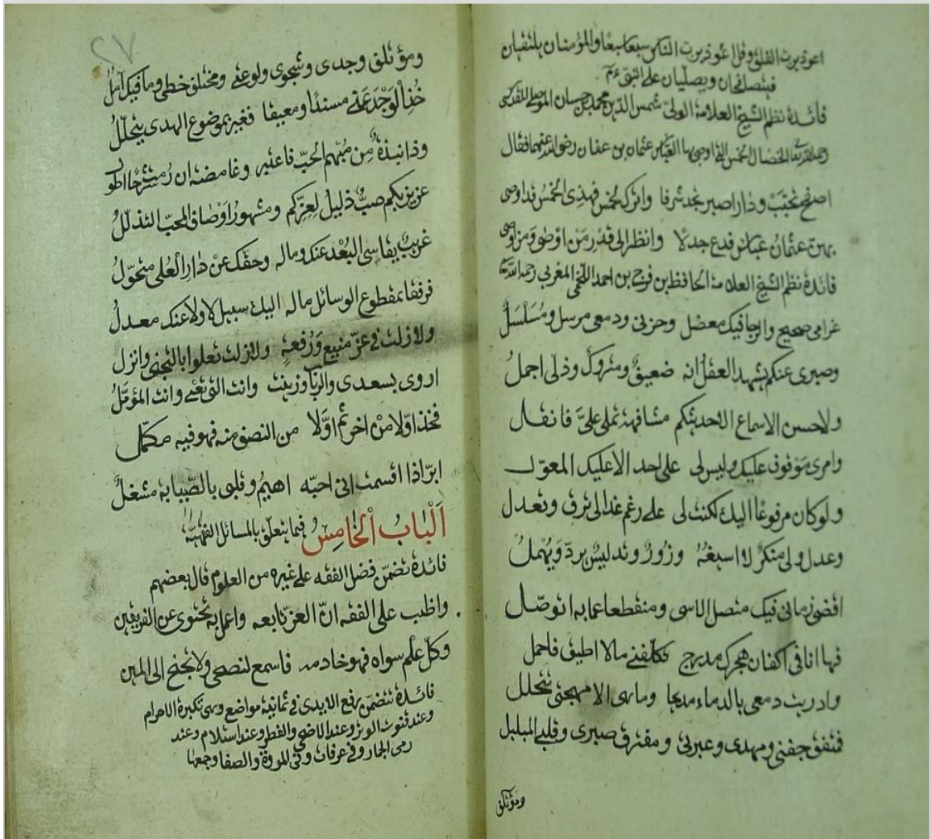 اعوذ برب الفلق وقل اعوذ برب الناس سبعا سبعا والمؤمنان يلتقيان
فيتصافحان ويصليان على النبي عم
فائدة نظم الشيخ العلامة الولى شمس الدين محمد بن حسان الموصلى المقدسى
رحمه الله تعالى الخصال الخمس التى اوصى بها العباس عثمان بن عفان رضى الله عنهما فقال
اصفح تحبب ودار اصبر تجد شرفا واترك لخمس فهذى الخمس قد اوصى
بهن عثمان عباس فدع جدلا وانظر الى قدر من اوصى ومن اوصى
فائدة نظم الشيخ العلامة الحافظ بن فرح بن احمد اللخمى المغربى رحمه الله
غرامى صحيح والرجا فيك معضل وحزنى ودمعى مرسل ومسلسل
وصبرى عنكم يشهد العقل انه ضعيف ومتروك وذلى اجمل
ولا حسن الا سماع حديثكم مشافهة تملى على فانقل
وامرى موقوف عليك وليس لى على احد الا عليك المعول
ولو كان مرفوعا اليك لكنت لى على رغم عذالى ترق وتعدل
وعذلى منكر لا اسيغه وزور وتدليس يرد ويهمل
اقضى زمانى فيك متصل الاسى ومنقطعا عما به اتوصل
فها انا فى اكفان هجرك مدرج تكلفنى ما لا اطيق فاحمل
وادريت دمعى بالدماء مدبجا وما هى الا مهجتى تتحلل
فمتفق جفنى وسهدى وعبرتى ومفترق صبرى وقلبى المبلبل
ومؤتلق
ومؤتلق وجدى وشجوى ولوعتى ومختلف خطى وما فيك آمل
خذ الوجد عنى مسندا ومعنعنا فغيرى بموضوع الهدى يتحلل
وذا نبذة من مبهم الحب فاعتبر وغامضه ان رمت شرحا اطول
عزيز بكم صب ذليل لعزكم ومشهور اوصاف المحب التذلل
غريب يقاسى البعد عنك وماله وحقك عن دار العلى متحول
فرفقا بمقطوع الوسائل ماله اليك سبيل لا ولا عنك معدل
ولا زلت فى عز منيع ورفعة ولا زلت تعلوا بالتجنى وانزل
اروى بسعدى والرباب وزينب وانت الذى تعنى وانت المؤمل
فخذ اولا من آخر ثم اولا من النصف منه فهو فيه مكمل
ابر اذا اقسمت انى احبه اهيم وقلبى بالصبابة مشغل
الباب الخامس فيما يتعلق بالمسائل الفقهية
فائدة تتضمن فضل الفقه على غيره من العلوم قال بعضهم
واظب على الفقه ان العز تابعه واعمل به تحتوى عن الفريقين
وكل علم سواه فهو خادمه فاسمع لنصحى ولا تجنح الى المين
فائدة تتضمن رفع الايدى فى ثمانية مواضع وهى تكبيرة الاحرام
وعند قنوت الوتر وعند الاضحى والفطر وعند استلام وعند
رمى الجمار وفى عرفات وفى المروة والصفا وجمعها